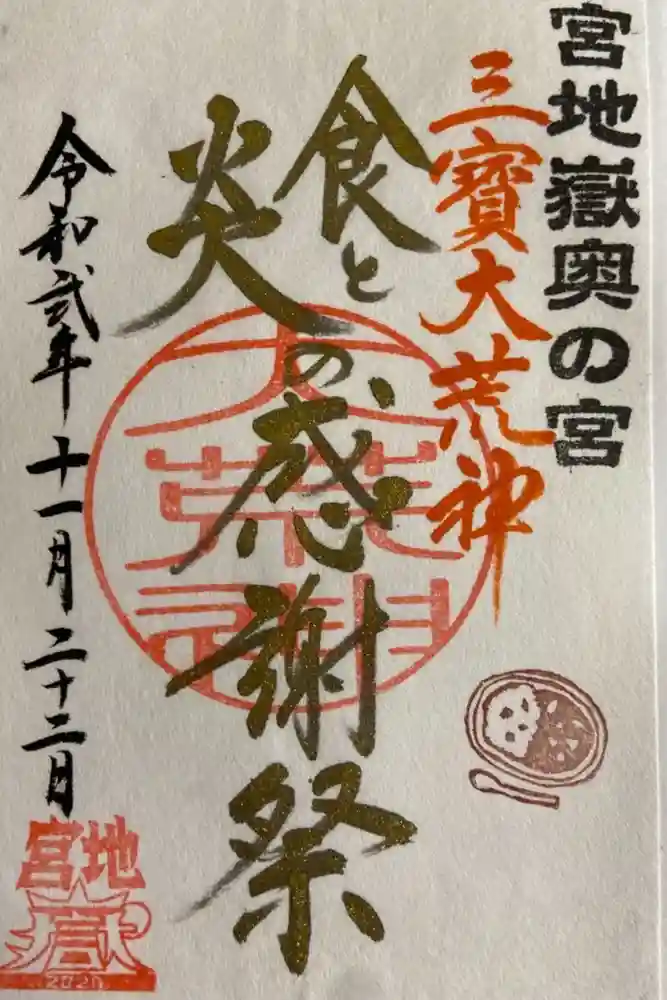 宮地嶽奥の宮
三寳大荒神
食と
炎の感謝祭
大荒神
令和弐年十一月二十二日
宮地
嶽
2020